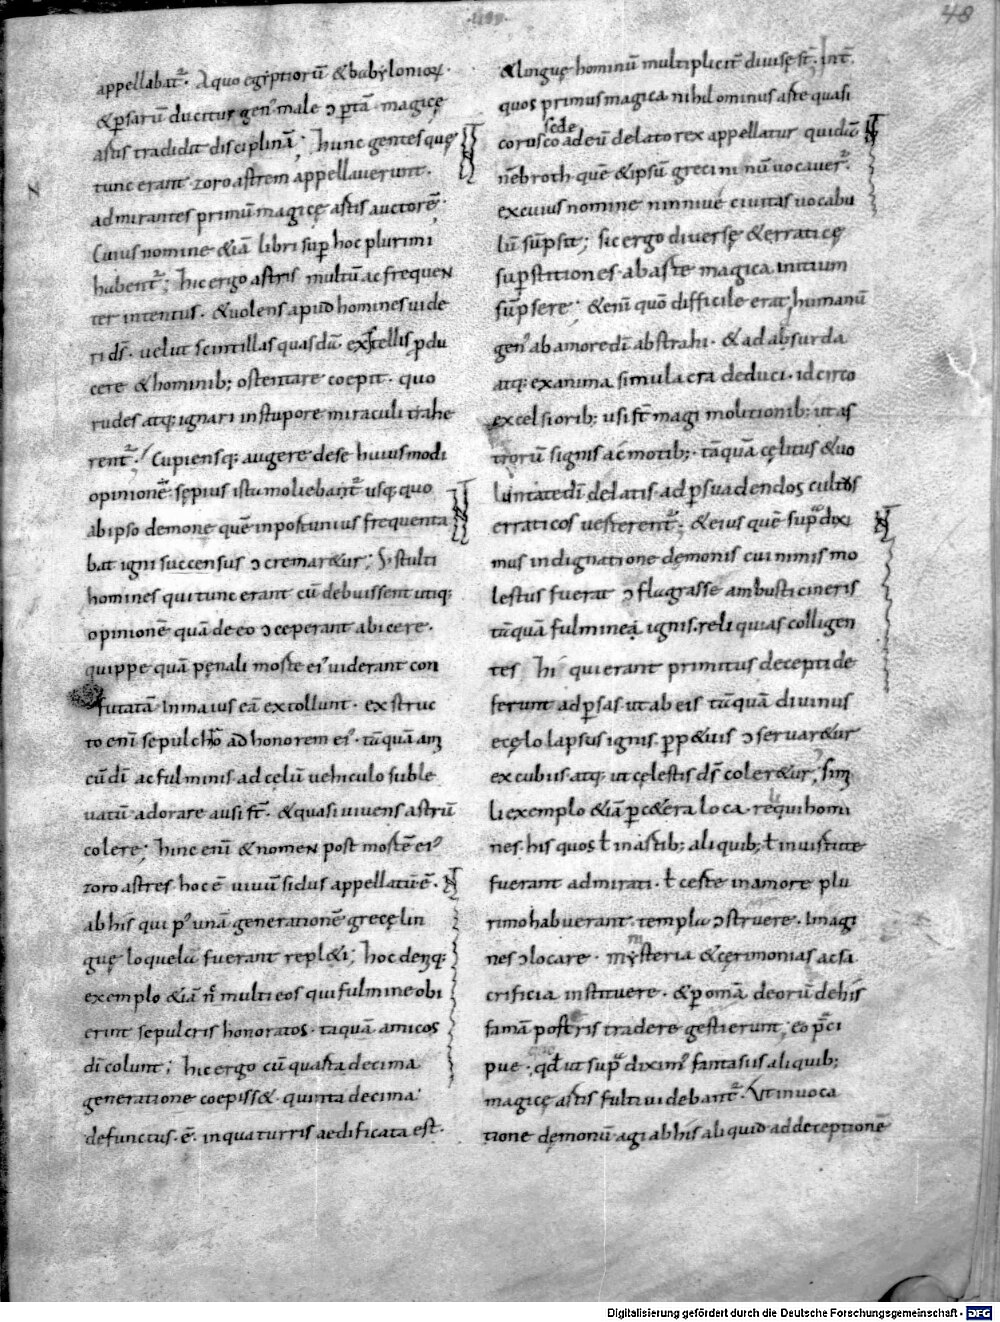 48
appellabat᷑. A quo egyptiorũ & babylonioꝝ.
& ꝑsarũ ducitur gen᾽ male ɔꝑtã magicę
astis tradidit disciplinã; hunc gentes quę
tunc erant zoroastrem appellauerunt.
admirantes primũ magicę astis auctorẽ.
Cuius nomine &iã libri suꝑ hoc plurimi
habent᷑; hic ergo astris multũ ac frequen
ter intentus. & uolens apud homines uide
ri dſ̃. uelut scintillas quasdã ex stellis ꝓdu
cere & hominib; ostentare coepit. quo
rudes atq; ignari in stupore miraculi trahe
rent᷑; Cupiensq; augere de se huiusmodi
opinionẽ sępius ista moliebant᷑ usq; quo
ab ipso demone quẽ inpostunius frequenta
bat igni succensus ɔcremar&ur; S; stulti
homines qui tunc erant cũ debuissent utiq;
opinionẽ quã de eo ɔceperant abicere.
quippe quã pęnali moste ei᾽ uiderant con
futatã. In maius eã extollunt. exstruc
to enĩ sepulchro ad honorem ei᾽. tãquã ami
cũ dĩ ac fulminis ad cęlũ uehiculo suble
uatũ adorare ausi st̃. & quasi uiuens astrũ
colere; hinc enĩ & nomen post mostẽ ei᾽
zoroastres hoc ẽ uiuũ sidus appellatũ ẽ.
ab his qui p᾽ unã generationẽ grecę lin
guę loquela fuerant repl&i; hoc deniq;
exemplo &iã nc̃ multi eos qui fulmine obi
erint sepulcris honoratos. tãquã amicos
dĩ colunt; hic ergo cũ quasta decima
generatione coepiss&. quinta decima
defunctus. ẽ. in qua turris aedificata est.
& linguę hominũ multiplicit᷑ diuisę st̃. Int᷑
quos primus magica nihilominus aste quasi
corusco ad eũ delato rex appellatur quidã
sede
nẽbroth quẽ & ipsũ greci ninũ uocauer᷑.
ex cuius nomine niniuę ciuitas uocabu
lũ sũpsit; sic ergo diuersę & erraticę
suꝑstitiones. ab aste magica initium
sũpsere; &enĩ quõ difficile erat humanũ
gen᾽ ab amore dĩ abstrahi. & ad absurda
atq; exanima simulacra deduci. idcirco
excelsiorib; usi st̃ magi molitionib; ut as
trorũ signis ac motib;. tãquã cęlitus & uo
luntate dĩ delatis. ad ꝑsuadendos cultos
erraticos uesterent᷑. & eius quẽ supᵃ dixi
mus indignatione dęmonis cui nimis mo
lestus fuerat ɔflagrasse ambusti cineris
tãquã fulminea ignis. reliquias colligen
tes hi qui erant primitus decepti de
ferunt ad ꝑsas. ut ab eis tãquã diuinus
e cęlo lapsus ignis. ꝑp&uis ɔseruar&ur
excubiis. atq; ut cęlestis dſ̃ coler&ur; simi
li exemplo &iã ꝑ c&era loca. reliqui homi
nes. his quos ł in astib; aliquib; ł in uistute
fuerant admirati. ł ceste in amore plu
rimo habuerant. templa ɔstruere. imagi
nes ɔlocare. mysteria & cęrimonias ac sa
crificia instituere. & ꝑ omã deorũ de his
famã postęris tradere gestierunt; eo pͥci
pue. qđ ut supᵃ dixim᾽ fantasiis aliquib;
magicę astis fulti uidebant᷑. Ut inuoca
tione dęmonũ agi ab his aliquid ad deceptionẽ
Digitalisierung gefördert durch die Deutsche Forschungsgemeinschaft - DFG